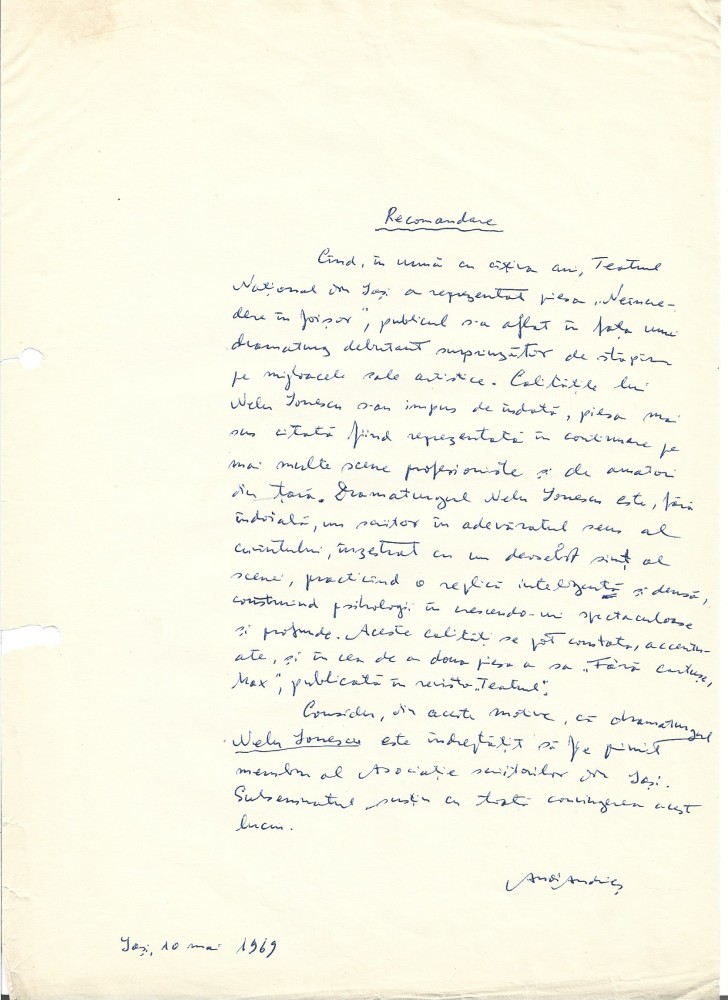 Recomandare
Cînd, în urmă cu cîţiva ani, Teatrul
Naţional din Iaşi a reprezentat piesa „Neîncre-
dere în foişor", publicul s-a aflat în faţa unui
dramaturg debutant surprinzător de stăpîn
pe mijloacele sale artistice. Calităţile lui
Nelu Ionescu s-au impus de îndată, piesa mai
sus citată fiind reprezentată în continuare pe
mai multe scene profesioniste şi de amatori
din ţară. Dramaturgul Nelu Ionescu este, fără
îndoială, un scriitor în adevăratul sens al
cuvîntului, înzestrat cu un deosebit simţ al
scenei, practicînd o replică inteligentă şi densă,
construind psihologii în crescendo-uri spectaculoase
şi profunde. Aceste calităţi se pot constata, accentu-
ate, şi în cea de a doua piesă a sa „Fără cartuşe,
Max", publicată în revista „Teatrul".
Consider, din aceste motive, că dramaturgul
Nelu Ionescu este îndreptăţit să fie primit
membru al Asociaţiei scriitorilor din Iaşi.
Subsemnatul susţin cu toată convingerea acest
lucru.
Andi Andrieş
Iaşi, 10 mai 1969